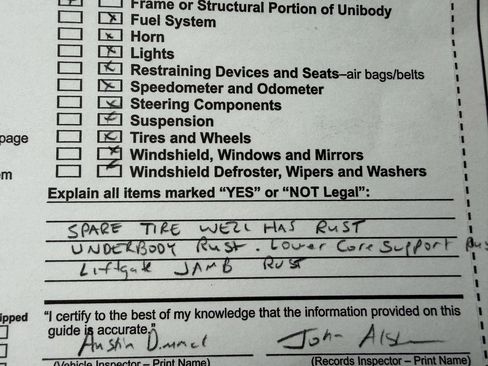 Frame or Structural Portion of Unibody
Fuel System
Horn
Lights
Restraining Devices and Seats–air bags/belts
Speedometer and Odometer
Steering Components
Suspension
page
Tires and Wheels
Windshield, Windows and Mirrors
Windshield Defroster, Wipers and Washers
Explain all items marked “YES” or “NOT Legal”:
SPARE TIRE WELL HAS RUST
UNDERBODY RUST. Lower Core Support
Liftgate JAMB RUST
“I certify to the best of my knowledge that the information provided on this
guide is accurate.”
Austin
John
(Vehicle Inspector – Print Name)
(Records Inspector – Print Name)